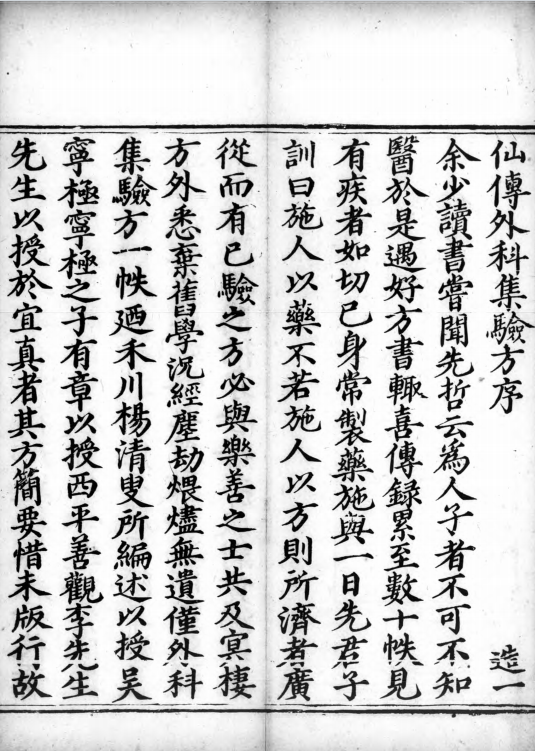 仙傳外科集驗方序
造一
余少讀書嘗聞先哲云為人子者不可不知
醫於是遇好方書輙喜傳録累至數十帙見
有疾者如切已身常製藥施與一日先君子
訓曰施人以藥不若施人以方則所濟者廣
從而有已驗之方必與樂善之士共及㝠棲
方外悉棄舊學況經塵劫煨燼無遺僅外科
集驗方一帙廼禾川楊清叟所編述以授吴
寧極寧極之子有章以授西平善觀李先生
先生以授於宜真者其方簡要惜未版行故